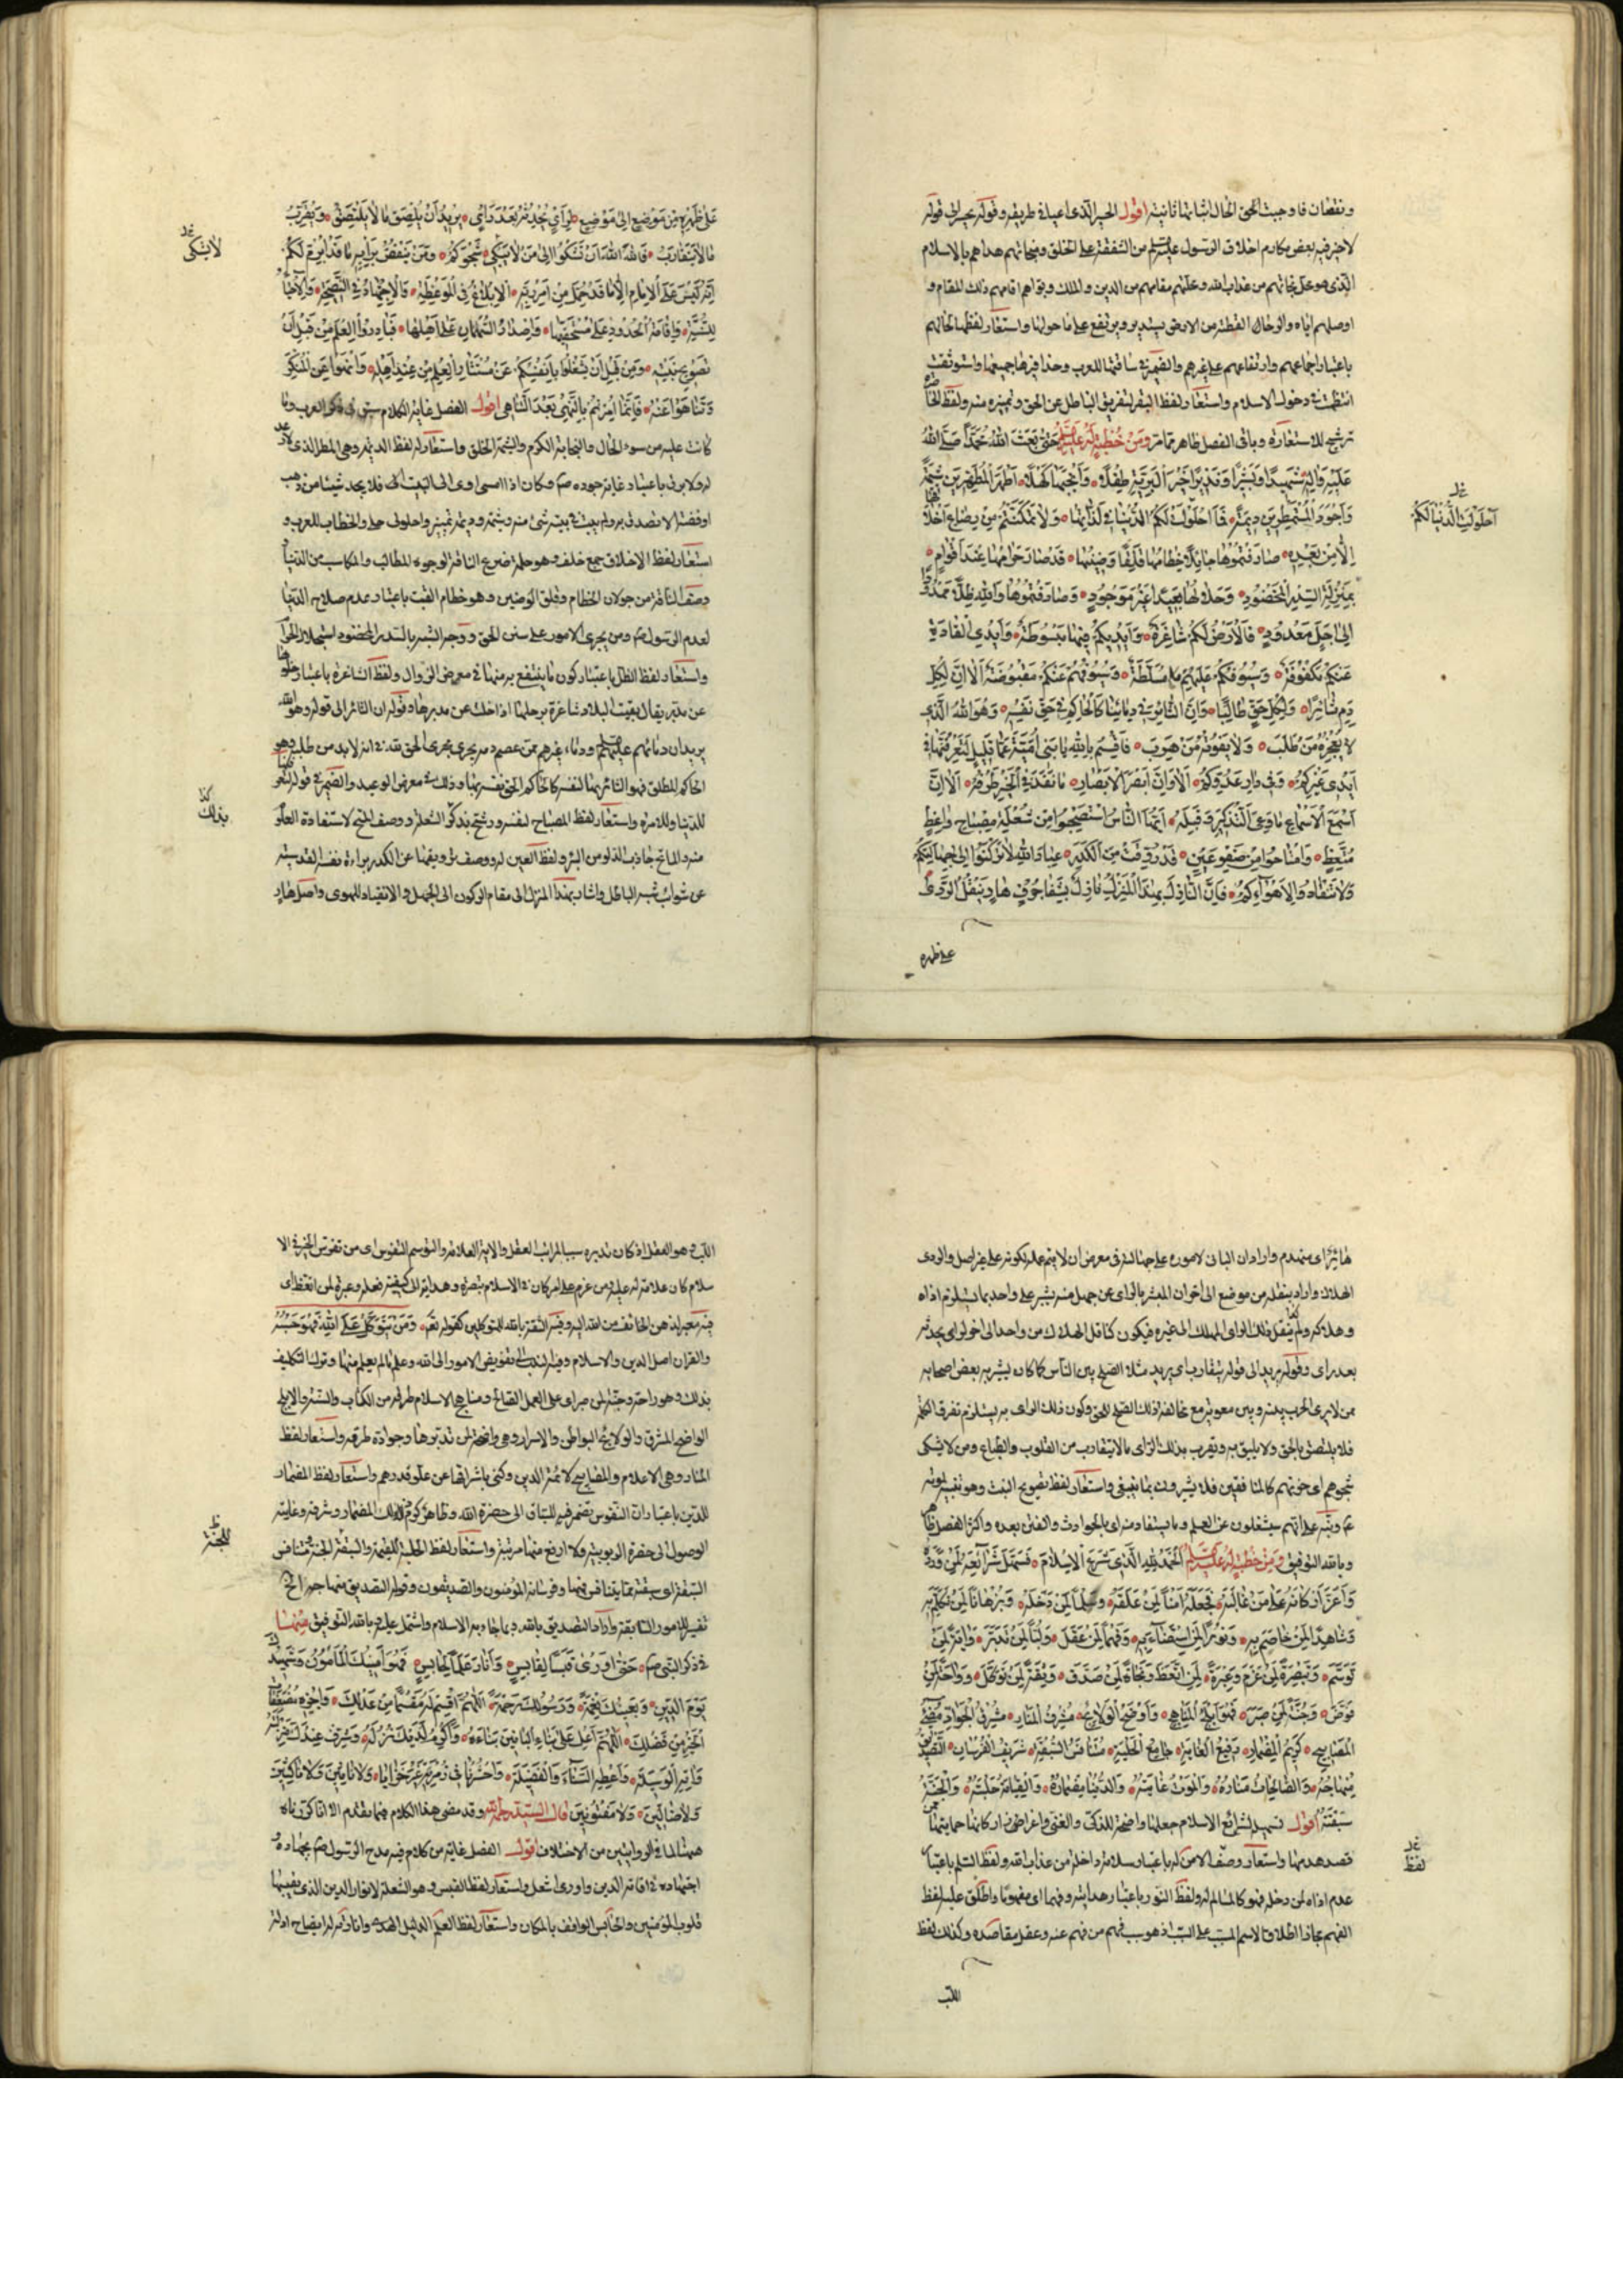 ونقصان فاوجبت الحق الحال اثباتها ثانيته اقول الخبر الذى اعيا طريقه وقوله
لاخر فيه بعض مكارم اخلاق الرسول عليه السلم من الشفقة على الخلق ونجاتهم هداهم بالاسلام
الذى هو على نجاتهم من عذاب الله وعليهم مقامهم من الدين والملك وبتوأهم اقامهم ذلك المقام و
اوصلهم اياه والرحال القطعة من الارض يستدير ويرتفع على ما حولها واستعار لفظها لحالهم
باعتبار اجتماعهم وارتفاعهم على غيرهم والضمير فى ساقتها للعرب وحذافيرها جميعها واستوثقت
انتظمت فى دخول الاسلام واستعار لفظ البقر لتفريق الباطل عن الحق وتميزه منه ولفظ الخاصرة
ترشيح للاستعارة وباقى الفصل ظاهر مما مر ومن خطبة له عليه السلم حتى بعث الله محمدا صلى الله
عليه واله شهيدا وبشيرا ونذيرا خير البرية طفلا وانجبها كهلا اطهر المطهرين شيمة
واجود المستمطرين ديمة فما احلولت لكم الدنيا فى لذاتها ولا تمكنتم من رضاع اخلافها
احلولت الدنيا لكم
الا من بعده صادفتموها جائلا خطامها قلقا وضينها قد صار حرامها عند اقوام
بمنزلة السدر المخضود وحلالها بعيدا غير موجود وصادفتموها والله ظلا ممدودا
الى اجل معدود فالارض لكم شاغرة وايديكم فيها مبسوطة وايدى القادة
عنكم مكفوفة وسيوفكم عليهم مسلطة وسيوفهم عنكم مقبوضة الا ان لكل
دم ثائرا ولكل حق طالبا وان الثائر فى دمائنا كالحاكم فى حق نفسه وهو الله الذى
لا يعجزه من طلب ولا يفوته من هرب فاقسم بالله يا بنى امية عما قليل لتعرفنها فى
ايدى غيركم وفى دار عدوكم الا وان ابصر الابصار ما نفذ فى الخير طرفه الا ان
اسمع الاسماع ما وعى التذكير وقبله ايها الناس استصبحوا من شعلة مصباح واعظ
متعظ وامتاحوا من صفو عين قد روقت من الكدر عباد الله لا تركنوا الى جهالتكم
ولا تنقادوا لاهوائكم فان النازل بهذا المنزل نازل بشفا جرف هار ينقل الردى
على ظهره
على ظهره من موضع الى موضع لرأى يحدثه بعد رأى يريد ان يلصق ما لا يلتصق ويقرب
ما لا يتقارب فالله الله ان تشكوا الى من لا يشكى شجوكم ومن ينقض برأيه ما قد ابرم لكم
لا يشكى
انه ليس على الامام الا ما قد حمل من امر ربه الابلاغ فى الموعظة والاجتهاد فى النصيحة والاحياء
للسنة واقامة الحدود على مستحقيها واصدار السهمان على اهلها فبادروا العلم من قبل
تصويح نبته ومن قبل ان تشغلوا بانفسكم عن مستثار العلم من عند اهله وانهوا عن المنكر
وتناهوا عنه فانما امرتم بالنهى بعد التناهى اقول الفصل غاية الكلام سبق ذكر العرب وما
كانت عليه من سوء الحال والنجابة الكرم والشيمة الخلق واستعار له لفظ الديمة وهى المطر الذى لا رعد
له ولا برق باعتبار غاية جوده ص وكان اذا امسى اوى الى البيت فلا يجد شيئا من ذهب
او فضة الا تصدق به ولم يبت فى بيته شئ منه واحلولى حلى والخطاب للعرب و
استعار لفظ الاخلاف جمع خلف وهو حلمة ضرع الناقة لوجوه المطالب والمكاسب من الدنيا
وصف الناقة من جولان الخطام وقلق الوضين وهو خطام القتب باعتبار عدم صلاح الدنيا
لعدم الرسول ص ومن يجرى الامور على سنن الحق ووجه الشبه بالسدر المخضود استحلال الحرام
واستعار لفظ الظل باعتبار كون ما ينتفع به منها فى معرض الزوال ولفظ الشاغرة باعتبار خلوها
عن مدبر يقال بقيت البلاد شاغرة برجلها اذا خلت عن مدبرها وقوله ان الثائر الى قوله وهو الله
يريد ان دمائهم عليهم السلم ودماء غيرهم ممن عصم دمه يجرى مجرى الحق لله فى انه لابد من طلبه وهو
الحاكم المطلق فهو الثائر بها لنفسه كالحاكم الحق نفسه بها وذلك فى معرض الوعيد والضمير فى قوله لتعرفنها
للدنيا وللامرة واستعار لفظ المصباح لنفسه ورشح بذكر الشعلة ووصف المتح لاستفادة العلوم
بذلك
منه والماتح جاذب الدلو من البئر ولفظ العين له ووصف ترويقها عن الكدر براءة نفسه القدسية
عن شوائب شبه الباطل واشار بهذا المنزل الى مقام الركون الى الجهل والانقياد للهوى واصل هار
هائر اى منهدم واراد ان البانى لاموره على جهالته فى معرض ان لا يتم عمله لكونه على غير اصل والردى
الهلاك واراد بنقله من موضع الى اخر ان المشير بالرأى عن جهل منه يشير على واحد بما يستلزم اذاه
وهلاكه ولم ينقل ذلك الراى المهلك الى غيره فيكون كناقل الهلاك من واحد الى اخر لراى يحدثه
بعد راى وقوله يريد الى قوله يتقارب اى يريد مثلا الصلح بين الناس كما كان يشير به بعض اصحابه
ممن لا يرى الحرب بينه وبين معوية مع مخالفة ذلك الصلح للحق وكون ذلك الراى به يستلزم تفرق الكلمة
فلا يلتصق بالحق ولا يليق به ويقرب بذلك الراى ما لا يتقارب من القلوب والطباع ومن لا يشكى
شجوهم اى حزنهم كالمنافقين فلا يشيرون بما ينبغى واستعار لفظ تصويح النبت وهو تغيبه لموته
ع ونبه على انهم سيشغلون عن العلم وما يستفاد منه اى بالحوادث والفتن بعده واكثر الفصل ظاهر
وبالله التوفيق ومن خطبة له عليه السلم الحمد لله الذى شرع الاسلام فسهل شرائعه لمن ورده
واعز اركانه على من غالبه فجعله امنا لمن علقه وسلما لمن دخله وبرهانا لمن تكلم به
وشاهدا لمن خاصم به ونورا لمن استضاء به وفهما لمن عقل ولبا لمن تدبر واية لمن
توسم وتبصرة لمن عزم وعبرة لمن اتعظ ونجاة لمن صدق وثقة لمن توكل وراحة لمن
فوض وجنة لمن صبر فهو ابلج المناهج واوضح الولائج مشرف المنار مشرق الجواد مضئ
المصابيح كريم المضمار رفيع الغاية جامع الحلبة متنافس السبقة شريف الفرسان التصديق
منهاجه والصالحات مناره والموت غايته والدنيا مضماره والقيامة حلبته والجنة
سبقته اقول تسهيله لشرائع الاسلام جعلها واضحة للذكى والغبى واعزاز اركانها حمايتها
قصد هدمها واستعار وصف الامن له باعتبار سلامة داخله من عذاب الله ولفظ السلم باعتبار
لفظ
عدم اذاه لمن دخله فهو كالمسالم له ولفظ النور باعتبار هدايته وفهما اى مفهوما واطلق عليه لفظ
الفهم مجازا اطلاقا لاسم المسبب على السبب اذ هو سبب فهم من فهم عنه وعقل مقاصده وكذلك لفظ
اللب
اللب وهو العقل اذ كان تدبره سببا لمراتب العقل والاية العلامة والتوسم التفرس اى من تفرس الخير فى الا
سلام كان علامة له عليه ومن عزم على امر كان فى الاسلام تبصرة وهداية الى كيفية فعله وعبرة لمن اتعظ اى
فيه معبر لذهن الخائف من الله اليه وفيه الثقة بالله للمتوكلين كقوله تعالى ومن يتوكل على الله فهو حسبه
والقران اصل الدين والاسلام وفيه تفويض الامور الى الله وعلم ما لم يعلم منها وترك التكليف
بذلك وهو راحة وجنة لمن صبر اى على العمل الصالح ومناهج الاسلام طرقه من الكتاب والسنة والابلج
الواضح المشرق والولائج البواطن والاسرار وهى واضحة لمن تدبرها وجواده طرقه واستعار لفظ
المنار وهى الاعلام والمصابيح لائمة الدين وكنى باشراقها عن علو قدرهم واستعار لفظ المضمار
للدين باعتبار ان النفوس تضمر فيه للسباق الى حضرة الله وظاهر كرم ذلك المضمار وشرفه وغايته
للجنة
الوصول الى حضرة الربوبية ولا ارفع منها مرتبة واستعار لفظ الحلبة للقيمة والسبقة الجنة ومتنافس
السبقة اى سبقته مما يتنافس فيها وفرسانه المؤمنون والصديقون وقوله التصديق منهاجه الخ
تفسير للامور السابقة واراد التصديق بالله وبما جاء به الاسلام واشتمل عليه وبالله التوفيق منها
فى ذكر النبى ص حتى اورى قبسا لقابس وانار علما لحابس فهو امينك المأمون وشهيدك
يوم الدين وبعيثك نعمة ورسولك بالحق رحمة اللهم اقسم له مقسما من عدلك واجزه مضعفات
الخير من فضلك اللهم اعل على بناء البانين بناءه واكرم لديك نزله وشرف عندك منزلته
واته الوسيلة واعطه السناء والفضيلة واحشرنا فى زمرته غير خزايا ولا نادمين ولا ناكبين
ولا ضالين ولا مفتونين قال السيد رحمه الله وقد مضى هذا الكلام فيما تقدم الا انا كررناه
ههنا لما فى الروايتين من الاختلاف اقول الفصل غايته من كلام فيه مدح الرسول ص بجهاده و
اجتهاده فى اقامة الدين واورى اشعل واستعار لفظ القبس وهو الشعلة لانوار الدين الذى يقتبسها
قلوب المؤمنين والحابس الواقف بالمكان واستعار لفظ العلم الدليل الهدى وانارته له ايضاح ادلته